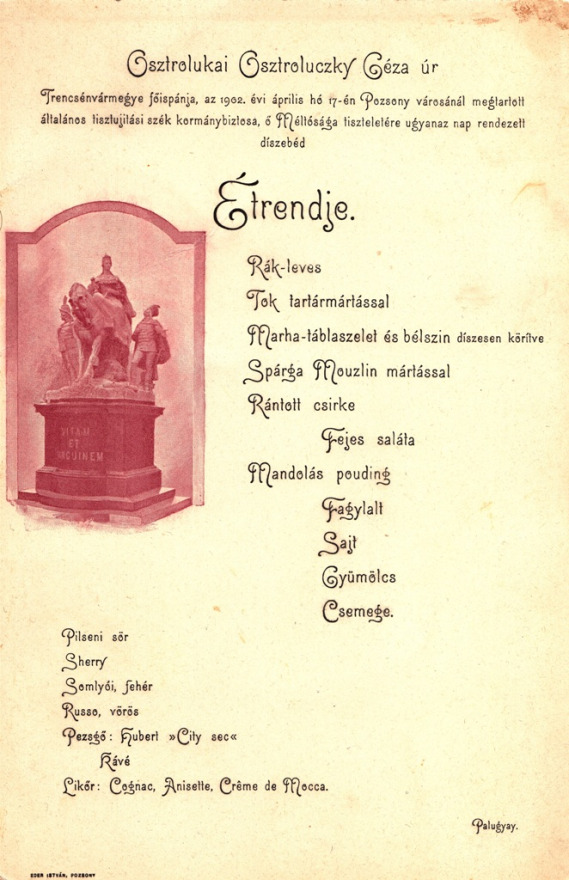 Osztrolukai Osztroluczky Géza úr
Trencsénvármegye főispánja, az 1902. évi április hó 17-én Pozsony városánál megtartott
általános tisztujitási szék kormánybiztosa, ő Méltósága tiszteletére ugyanaz nap rendezett
díszebéd
Étrendje.
VITAM
ET
SANGUINEM
Rák-leves
Tok tartármártással
Marha-táblaszelet és bélszin díszesen körítve
Spárga Mouzlin mártással
Rántott csirke
Fejes saláta
Mandolás pouding
Fagylalt
Sajt
Gyümölcs
Csemege.
Pilseni sör
Sherry
Somlyói, fehér
Russo, vörös
Pezsgő: Hubert »City sec«
Kávé
Likőr: Cognac, Anisette, Crême de Mocca.
Palugyay.
EDER ISTVÁN, POZSONY